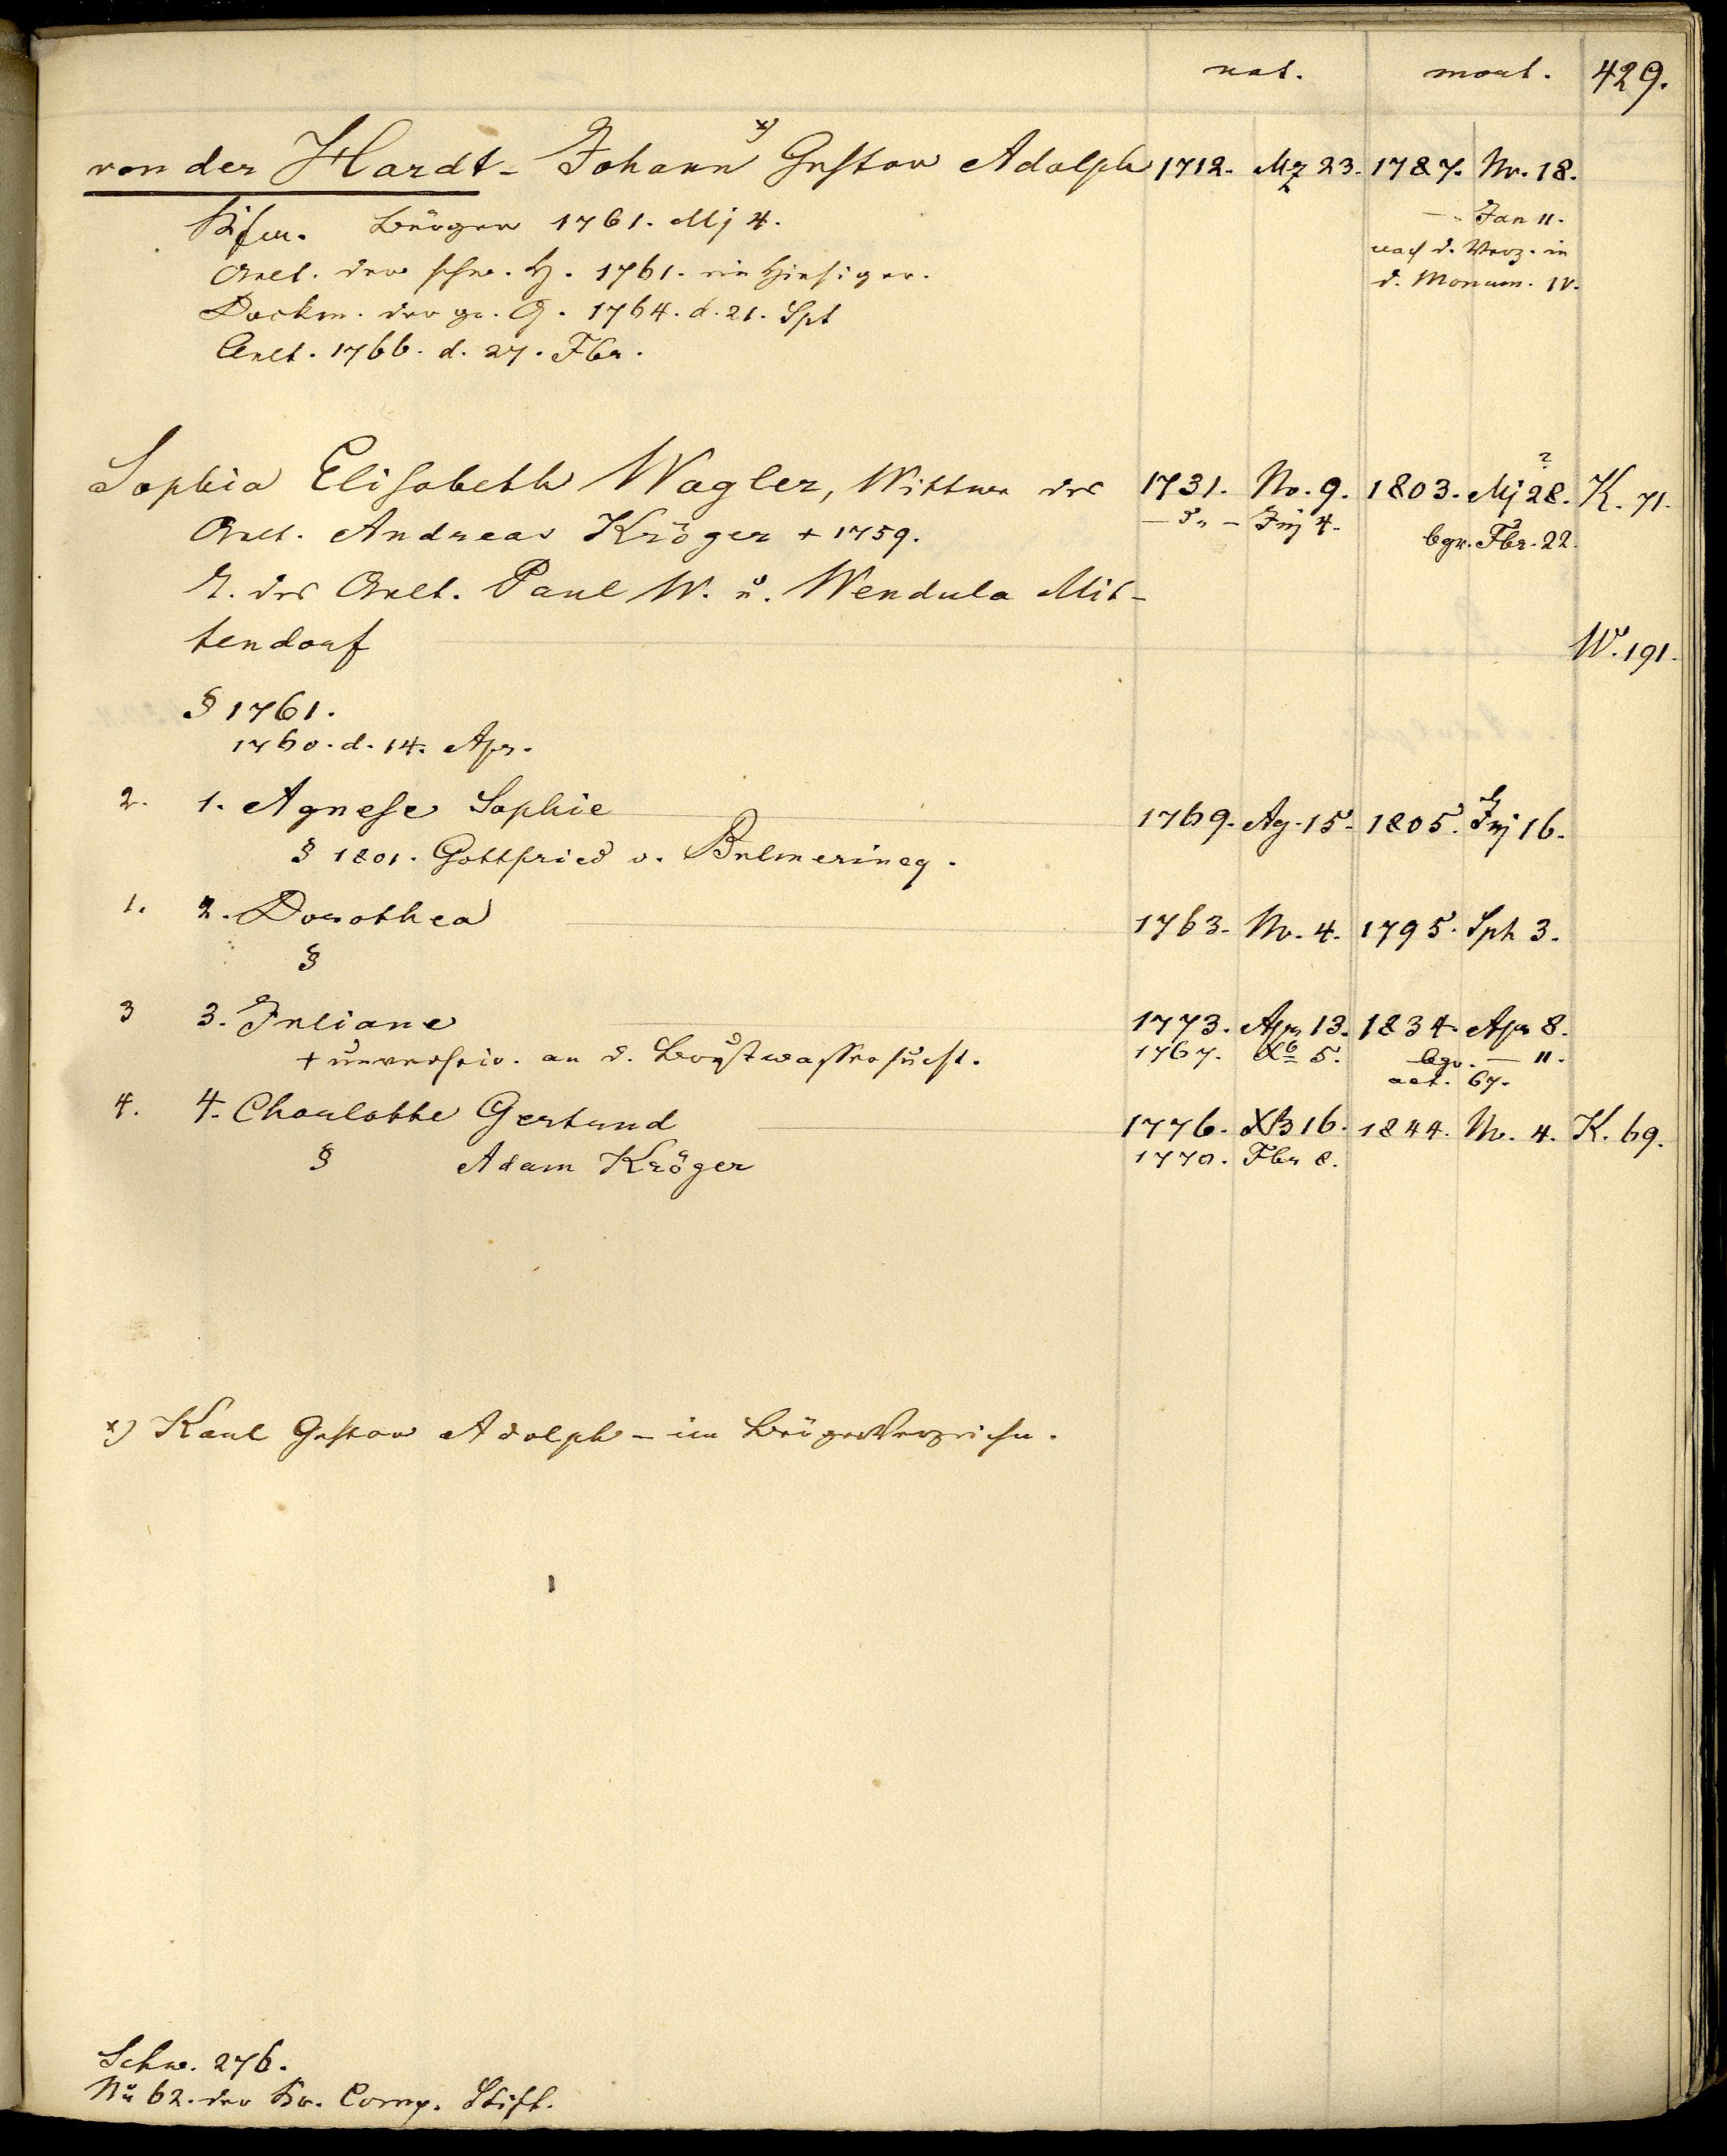 nat. mort. 429.
von der Hardt - Johann x) Gustav Adolph 1712. Mz 23. 1787. Nv. 18.
Kfm. Bürger 1761. Mj 4. — Jan 11.
Aelt. der schw. H. 1761. ein Hiesiger. nach d. Verz. in
Dockm. der gr. G. 1764. d. 21. Spt d. Monum. IV.
Aelt. 1766. d. 27. Fbr.
Sophia Elisabeth Wagler, Wittwe des 1731. Nv. 9. 1803. Mj 28.? K. 71.
Aelt. Andreas Kröger + 1759. — d. — Jnj 4. bgr. Fbr. 22.
T. des Aelt. Paul W. u. Wendula Mit-
tendorf W. 191.
§ 1761.
1760. d. 14. Apr.
2. 1. Agnese Sophie 1769. Ag. 15. 1805. Jnj 16.
§ 1801. Gottfried v. Bulmerincq.
1. 2. Dorothea 1763. Nv. 4. 1795. Spt 3.
§
3 3. Juliane 1773. Apr 13. 1834. Apr 8.
+ unverheir. an d. Brustwassersucht. 1767. Xb 5. bgr. — 11.
aet. 67.
4. 4. Charlotte Gertrud 1776. XB 16. 1844. Nv. 4. K. 69.
§ Adam Kröger 1770. Fbr 8.
x) Karl Gustav Adolph - im BürgerVerzeichn.
Schw. 276.
Nu 62. der Br. Comp. Stift.